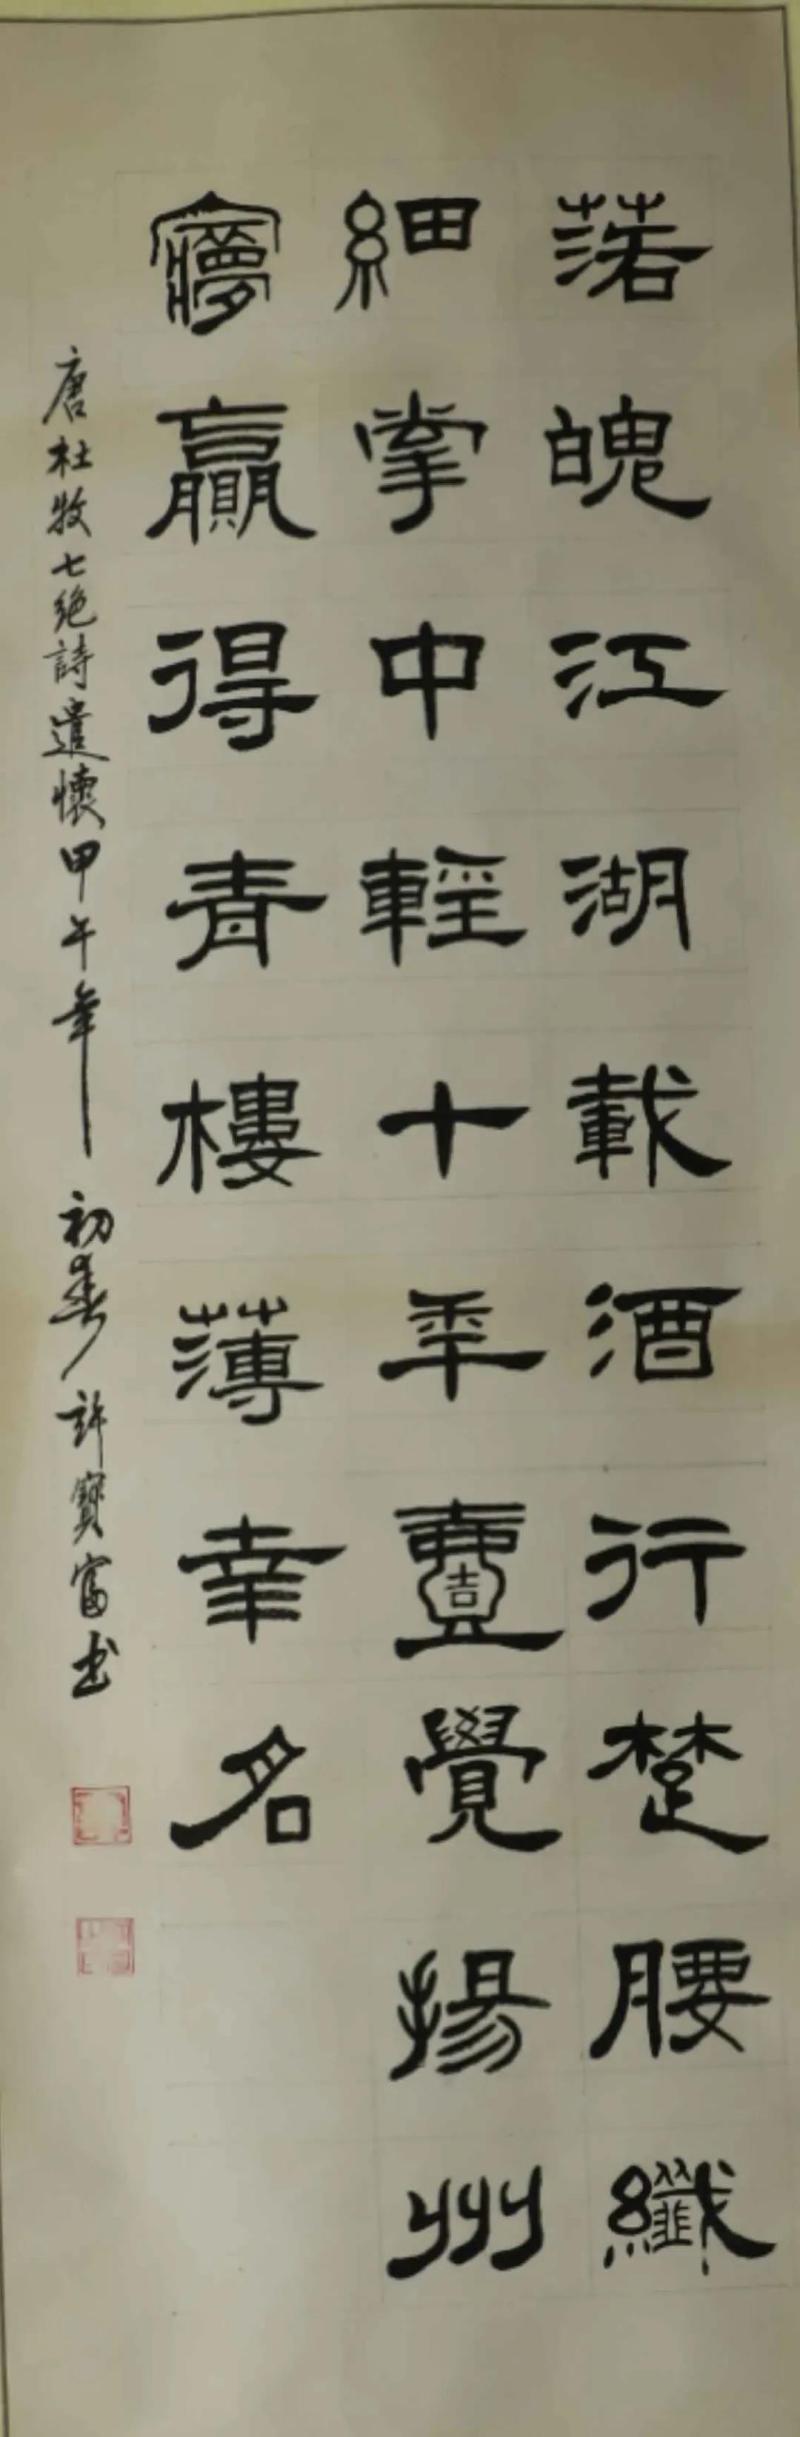 落魄江湖載酒行楚腰纖
細掌中輕十年壹覺揚州
夢贏得青樓薄幸名
唐杜牧七绝詩遣懷甲午年初春許寶富书